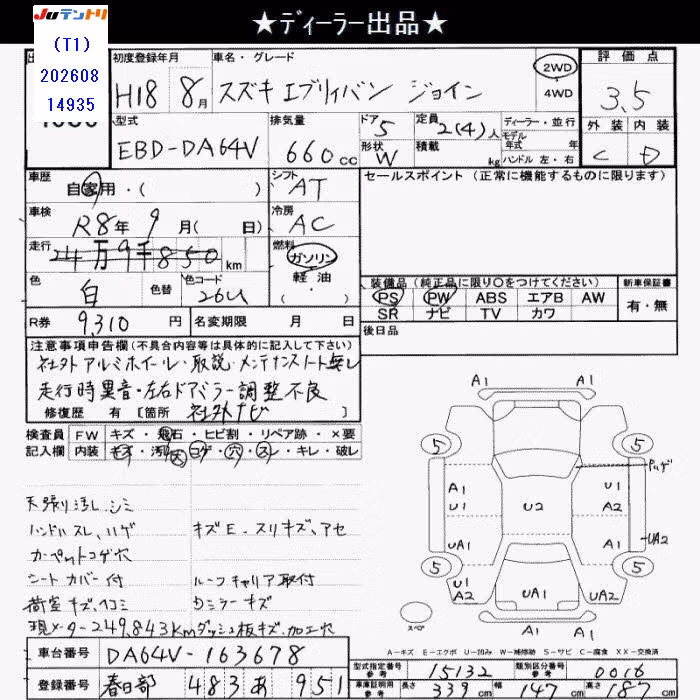 ★ディーラー出品★
JUテントリ
(T1)
202608
14935
初度登録年月
H18 8月
車名・グレード
スズキ エブリィバン ジョイン
2WD
4WD
評価点
3.5
外装 内装
C D
型式
EBD-DA64V
排気量
660cc
ドア
5
形状
W
定員
2(4)人
積載
kg
ディーラー・並行
モデル
年式 年
ハンドル 左・右
車歴
自家用・( )
シフト
AT
セールスポイント (正常に機能するものに限ります)
車検
R8年 9月( 日)
冷房
AC
走行
24万9千850km
燃料
ガソリン
軽油
・
色
白
色替
色コード
26U
装備品 (純正品に限り○をつけてください)
新車保証書
PS PW ABS エアB AW
SR ナビ TV カワ
有・無
R券
9,310円
名変期限 月 日
後日品
注意事項申告欄(不具合内容等は具体的に記入して下さい)
社外アルミホイール・取説・メンテナンスノート無し
走行時異音・左右ドアミラー調整不良
修復歴 有 [箇所 社外ナビ ]
検査員
記入欄
FW キズ・飛石・ヒビ割・リペア跡・×要
内装 キズ・汚れ・コゲ・穴・スレ・キレ・破レ
天張り汚し、シミ
ハンドルスレ、ハゲ キズE、スリキズ、アセ
カーペットコゲ穴
シートカバー付 ルーフキャリア取付
荷室キズ、ヘコミ Dミラーキズ
現メーター249,843km ダッシュ板キズ、加工穴
A1 A1
5 5
A1
U1
U1
A2
U2
UA1
A1
UA2
5 5
U1
A2
UA1
UA2
A1 A1
スペア
A-キズ E-エクボ U-凹み W-補修跡 S-サビ C-腐食 XX-交換済
車台番号
DA64V-163678
型式指定番号
参考
15132
類別区分番号
参考
0016
登録番号
春日部 483 あ 951
車庫証明用
参考
長さ 339cm 幅 147cm 高さ 187cm